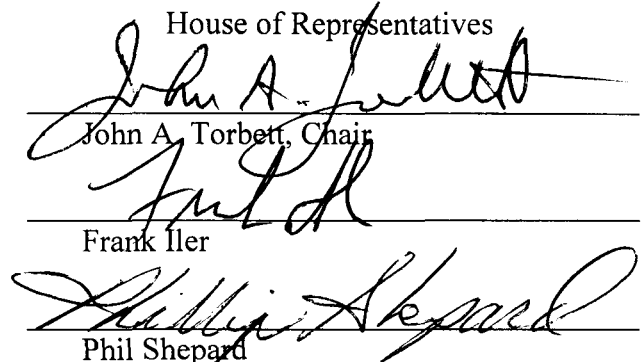 House of Representatives
John A. Torbett
John A. Torbett, Chair
Frank Iler
Phillip Shepard
Phil Shepard